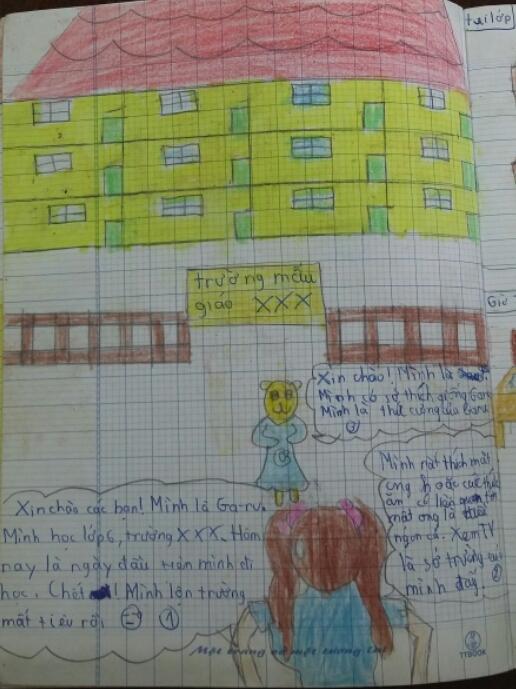 tại lớp
trường mẫu
giáo XXX
Giờ
Xin chào các bạn! Mình là Ga-ru.
Mình học lớp 6, trường XXX. Hôm
nay là ngày đầu tiên mình đi
học. Chết! Mình lộn trường
mất tiêu rồi. 1
Mình rất thích mật
ong hoặc các thức
ăn có liên quan tới
mật ong là
ngon cả. Xem TV
là sở trường của
mình đấy. 2
Xin chào! Mình là
Mình có sở thích giống Garu
Mình là thú cưng của Garu
3
TTBOOK